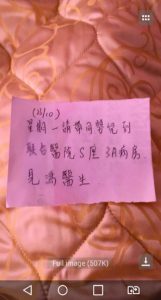 (23/10)
星期一請帶同醫記到
聯合醫院S座3A病房
見馮醫生
Full image (507K)